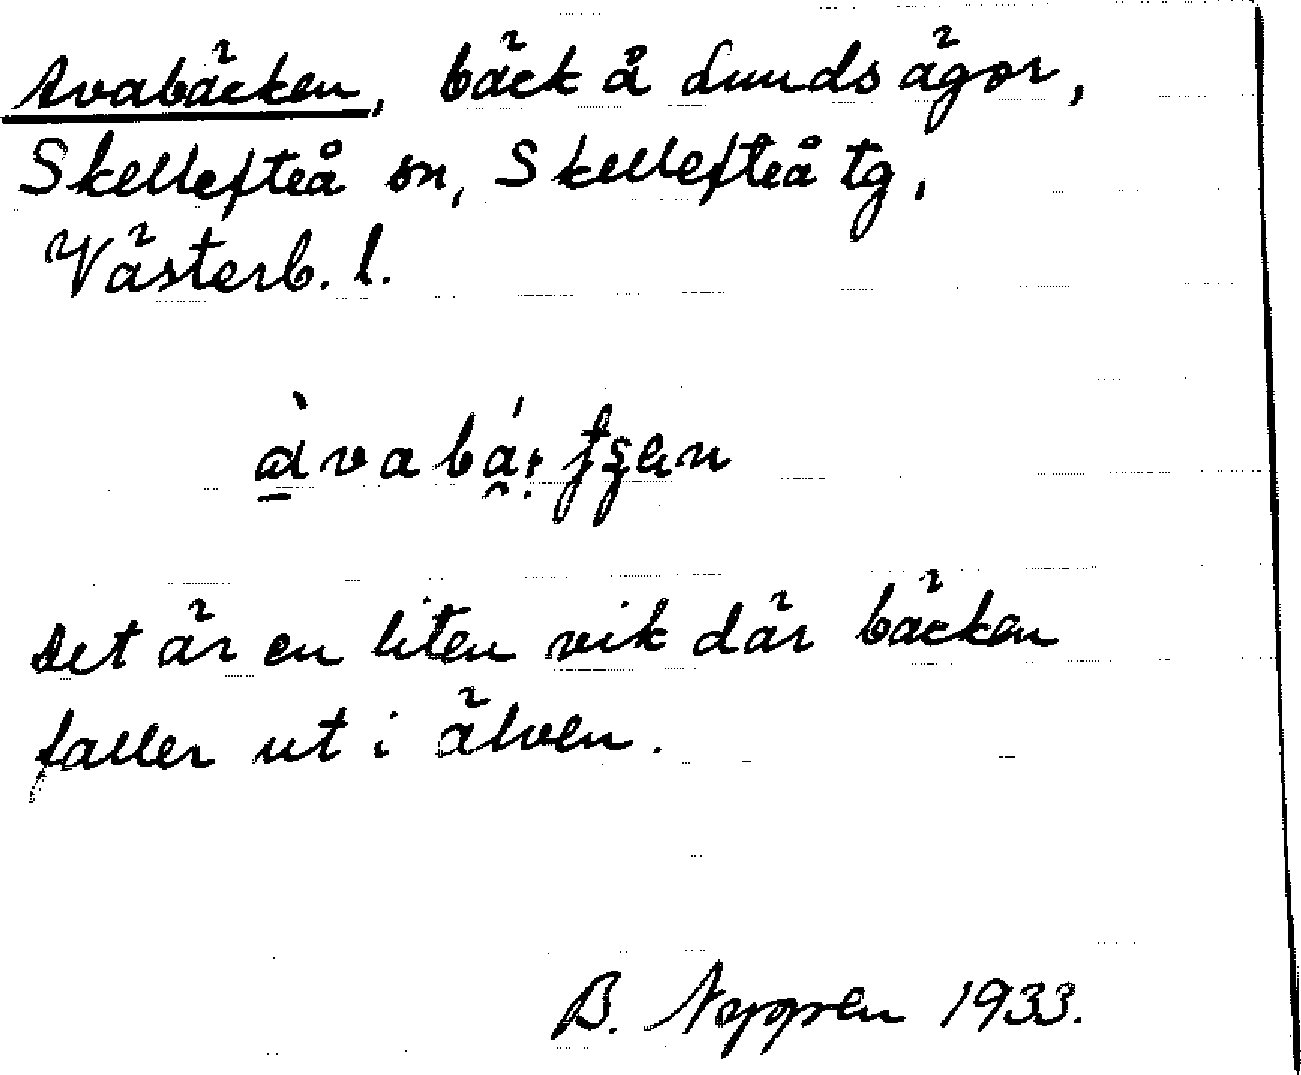 Avabäcken, bäck å Lunds ägor,
Skellefteå sn, Skellefteå tg,
Västerb. l.
Det är en liten vik där bäcken
faller ut i älven.
B. Nygren 1933.